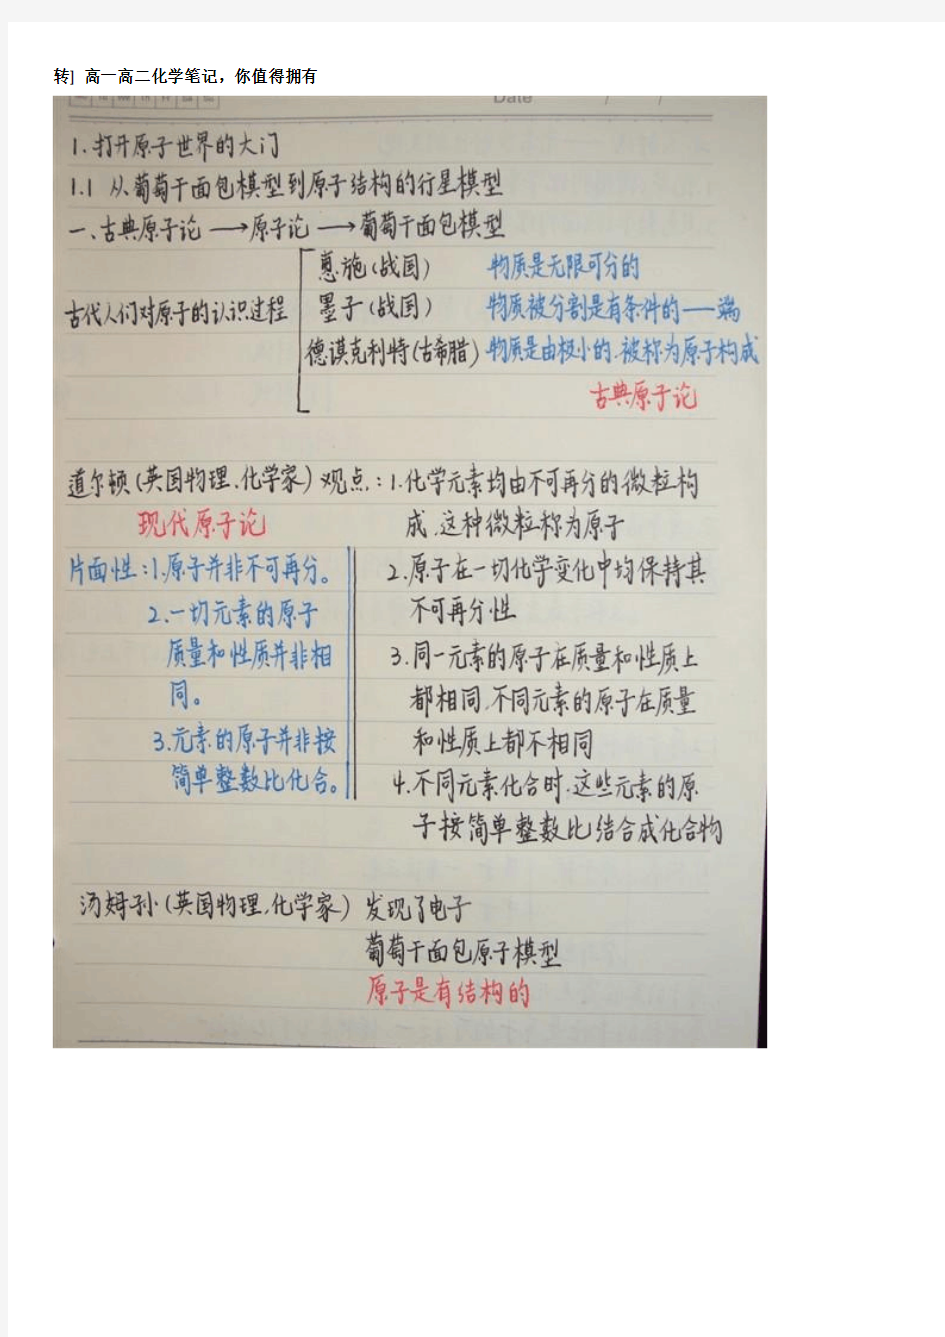 转] 高一高二化学笔记，你值得拥有
Date / /
1.打开原子世界的大门
1.1 从葡萄干面包模型到原子结构的行星模型
一、古典原子论→原子论→葡萄干面包模型
惠施(战国) 物质是无限可分的
古代人们对原子的认识过程 墨子(战国) 物质被分割是有条件的——端
德谟克利特(古希腊) 物质是由极小的.被称为原子构成
古典原子论
道尔顿(英国物理.化学家)观点:1.化学元素均由不可再分的微粒构
现代原子论 成.这种微粒称为原子
片面性:1.原子并非不可再分。 2.原子在一切化学变化中均保持其
2.一切元素的原子 不可再分性
质量和性质并非相 3.同一元素的原子在质量和性质上
同。 都相同.不同元素的原子在质量
3.元素的原子并非按 和性质上都不相同
简单整数比化合。 4.不同元素化合时.这些元素的原
子按简单整数比结合成化合物
汤姆孙(英国物理.化学家) 发现了电子
葡萄干面包原子模型
原子是有结构的